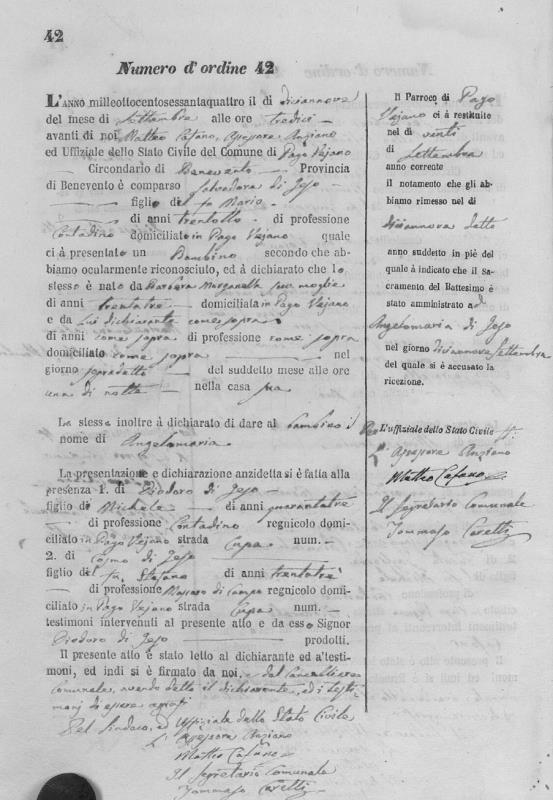 42
Numero d'ordine 42
L'ANNO milleottocentosessantaquattro il dì diciannove
del mese di Settembre alle ore tredici
avanti di noi, Matteo Cafano, Assessore Anziano
ed Uffiziale dello Stato Civile del Comune di Pago Vejano
Circondario di Benevento Provincia
di Benevento è comparso Salvadore di Jejo
figlio del fu Mario
di anni trentotto di professione
Contadino domiciliato in Pago Vejano quale
ci à presentato un Bambino secondo che ab-
biamo ocularmente riconosciuto, ed à dichiarato che lo
stesso è nato da Barbara Morganella sua moglie
di anni trentatre domiciliata in Pago Vejano
e da Lui dichiarante come sopra
di anni come sopra di professione come sopra
domiciliato come sopra nel
giorno sopradetto del suddetto mese alle ore
una di notte nella casa sua
Lo stesso inoltre à dichiarato di dare al bambino il
nome di Angelomaria
La presentazione e dichiarazione anzidetta si è fatta alla
presenza 1. di Diodoro di Jejo
figlio di Michele di anni quarantatre
di professione Contadino regnicolo domi-
ciliato in Pago Vejano strada Cupa num. —
2. di Cosmo di Jejo
figlio del fu Stefano di anni trentatrè
di professione Massaro di Campo regnicolo domi-
ciliato in Pago Vejano strada Cupa num. —
testimoni intervenuti al presente atto e da esso Signor
Diodoro di Jejo prodotti.
Il presente atto è stato letto al dichiarante ed a'testi-
moni, ed indi si è firmato da noi, e dal Cancelliere
Comunale, avendo detto il dichiarante, ed i testi-
moni di essere
Pel Sindaco, ed Uffiziale dello Stato Civile
L'Assessore Anziano
Matteo Cafano
Il Segretario Comunale
Tommaso Caretti
Il Parroco di Pago
Vejano ci à restituito
nel dì venti
di Settembre
anno corrente
il notamento che gli ab-
biamo rimesso nel dì
diciannove detto
anno suddetto in piè del
quale à indicato che il Sa-
cramento del Battesimo è
stato amministrato ad
Angelomaria di Jejo
nel giorno diciannove Settembre
del quale si è accusato la
ricezione.
Per L'uffiziale dello Stato Civile
L'Assessore Anziano
Matteo Cafano
Il Segretario Comunale
Tommaso Caretti